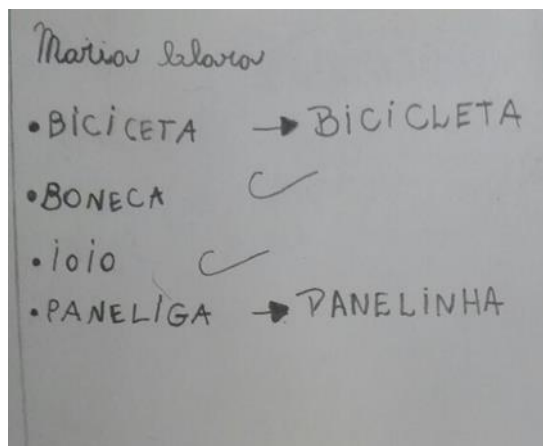 Maria Clara
•BICICETA → BICICLETA
•BONECA ✓
•IOIO ✓
•PANELIGA → PANELINHA